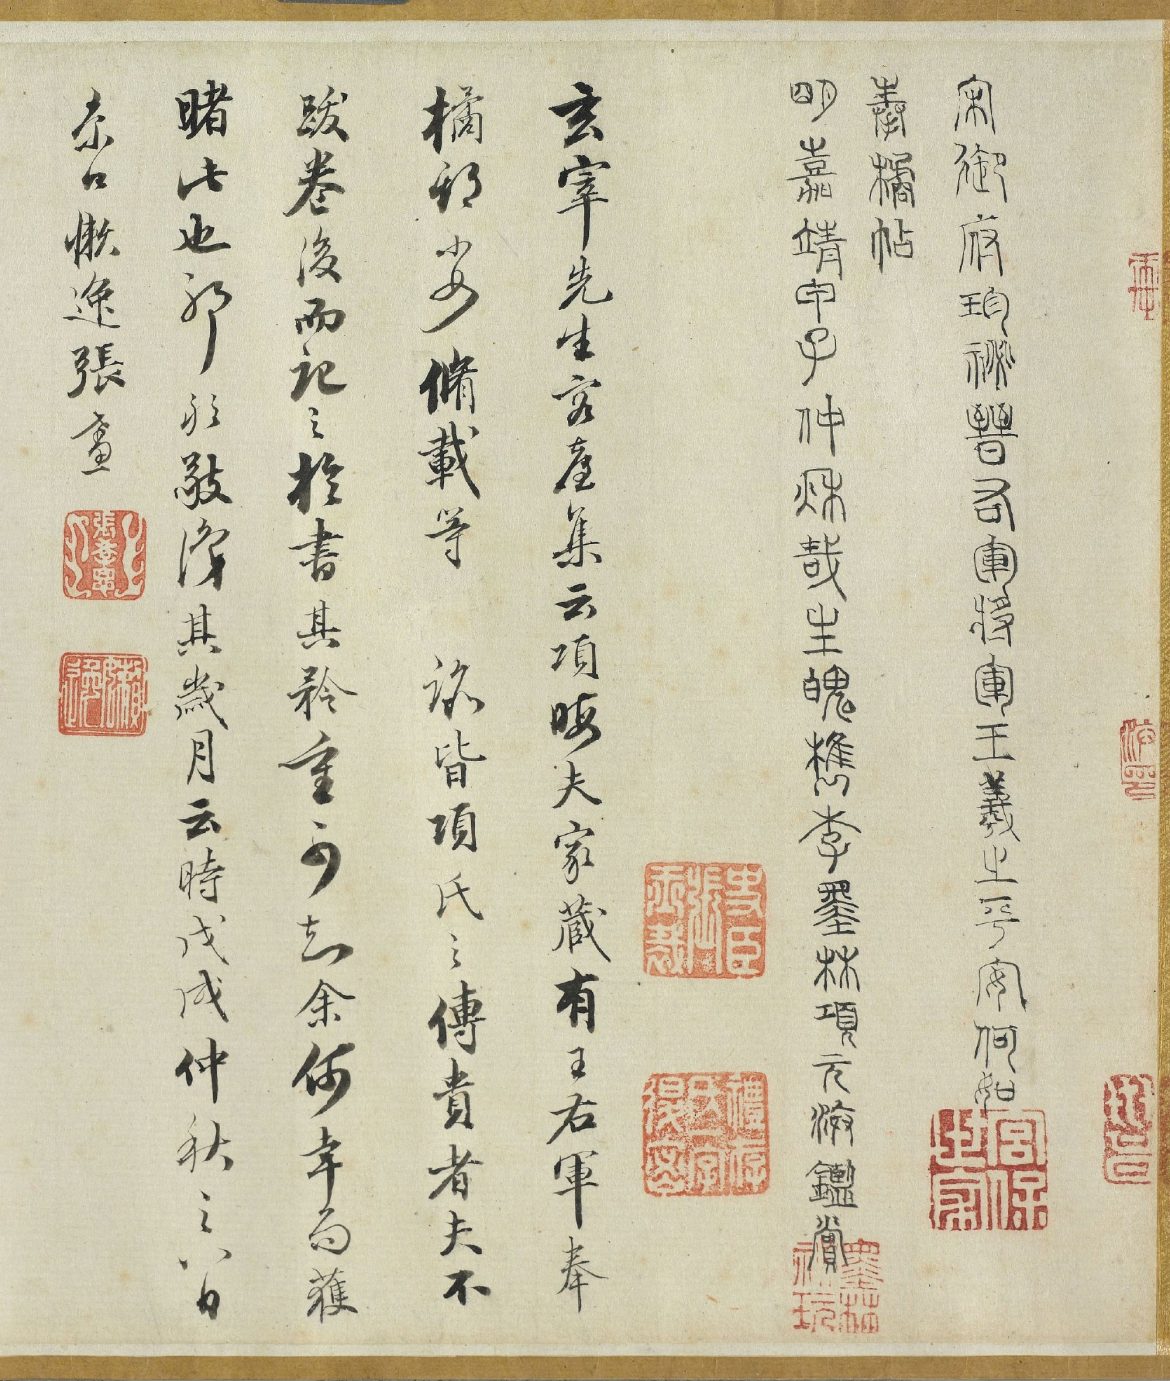 宋御府珍祕晉右軍將軍王羲之平安何如
奉橘帖
明嘉靖甲子仲秌哉生魄檇李墨林項元汴鑑賞
宮保世家
墨林祕玩
玄宰先生容臺集云項晦夫家藏有王右軍奉
橘 脩載等 皆項氏之傳貴者夫不
跋卷後而記之於書其矜重可知余何幸而獲
睹此也耶 敬識其歲月云時戊戌仲秋之八日
京口懶逸張
張孝思
懶逸